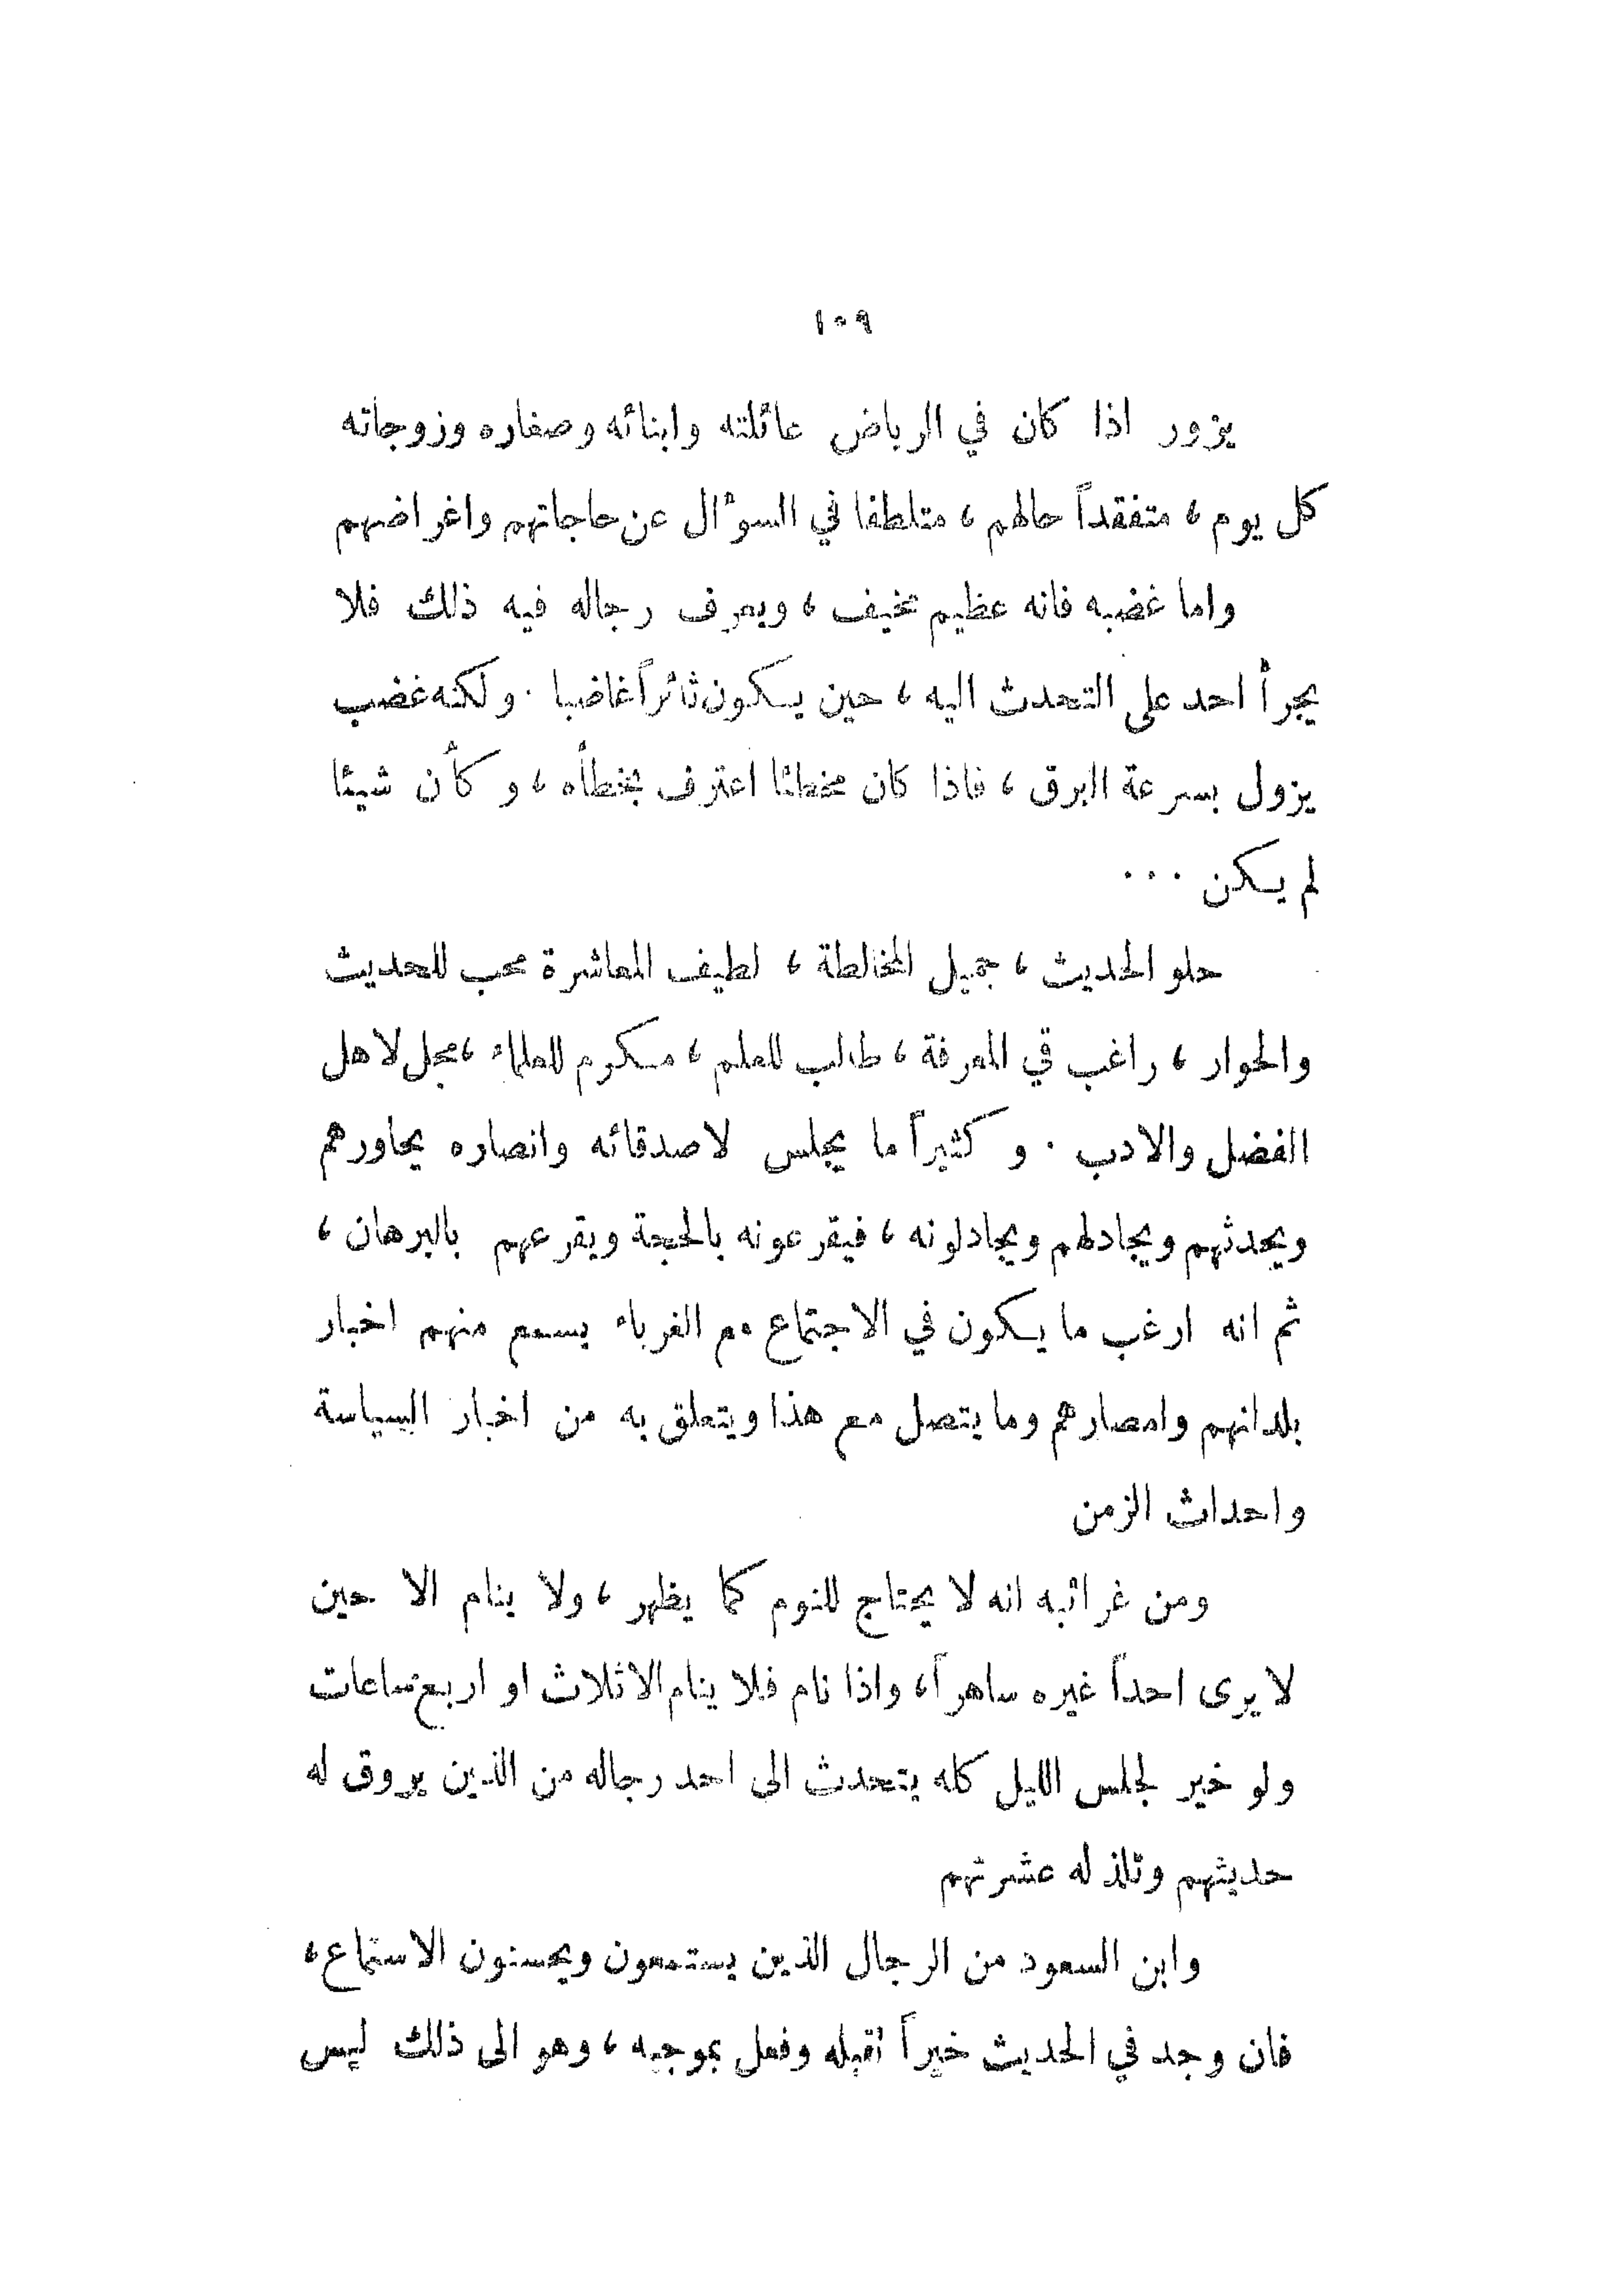 ١٠٩
يزور اذا كان في الرياض عائلته وابنائه وصغاره وزوجاته
كل يوم ، متفقداً حالهم ، متلطفا في السؤال عن حاجاتهم واغراضهم
واما غضبه فانه عظيم مخيف ، ويعرف رجاله فيه ذلك فلا
يجرأ احد على التحدث اليه ، حين يكون ثائراً غاضبا . ولكنه غضب
يزول بسرعة البرق ، فاذا كان مخطئا اعترف بخطأه ، وكأن شيئا
لم يكن ...
حلو الحديث ، جميل المخالطة ، لطيف المعاشرة محب للحديث
والحوار ، راغب في المعرفة ، طالب للعلم ، مكرم للعلماء ، مجل لاهل
الفضل والادب . وكثيراً ما يجلس لاصدقائه وانصاره يحاورهم
ويحدثهم ويجادلهم ويجادلونه ، فيقرعونه بالحجة ويقرعهم بالبرهان ،
ثم انه ارغب ما يكون في الاجتماع مع الغرباء يسمع منهم اخبار
بلدانهم وامصارهم وما يتصل مع هذا ويتعلق به من اخبار السياسة
واحداث الزمن
ومن غرائبه انه لا يحتاج للنوم كما يظهر ، ولا ينام الا حين
لا يرى احداً غيره ساهراً ، واذا نام فلا ينام الا ثلاث او اربع ساعات
ولو خير لجلس الليل كله يتحدث الى احد رجاله من الذين يروق له
حديثهم وتلذ له عشرتهم
وابن السعود من الرجال الذين يستمعون ويحسنون الاستماع ،
فان وجد في الحديث خيراً تقبله وفعل بموجبه ، وهو الى ذلك ليس